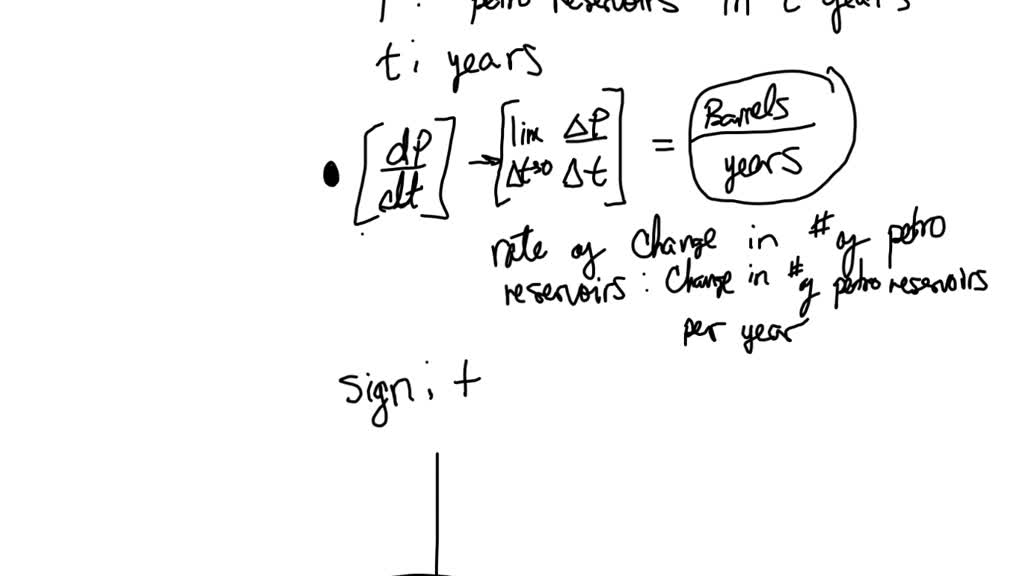 P: petro reservoirs in t years
t: years
[dP/dt] → [lim Δt→0 ΔP/Δt] = Barrels/years
rate of change in # of petro
reservoirs: Change in # of petro reservoirs
per year
sign: +